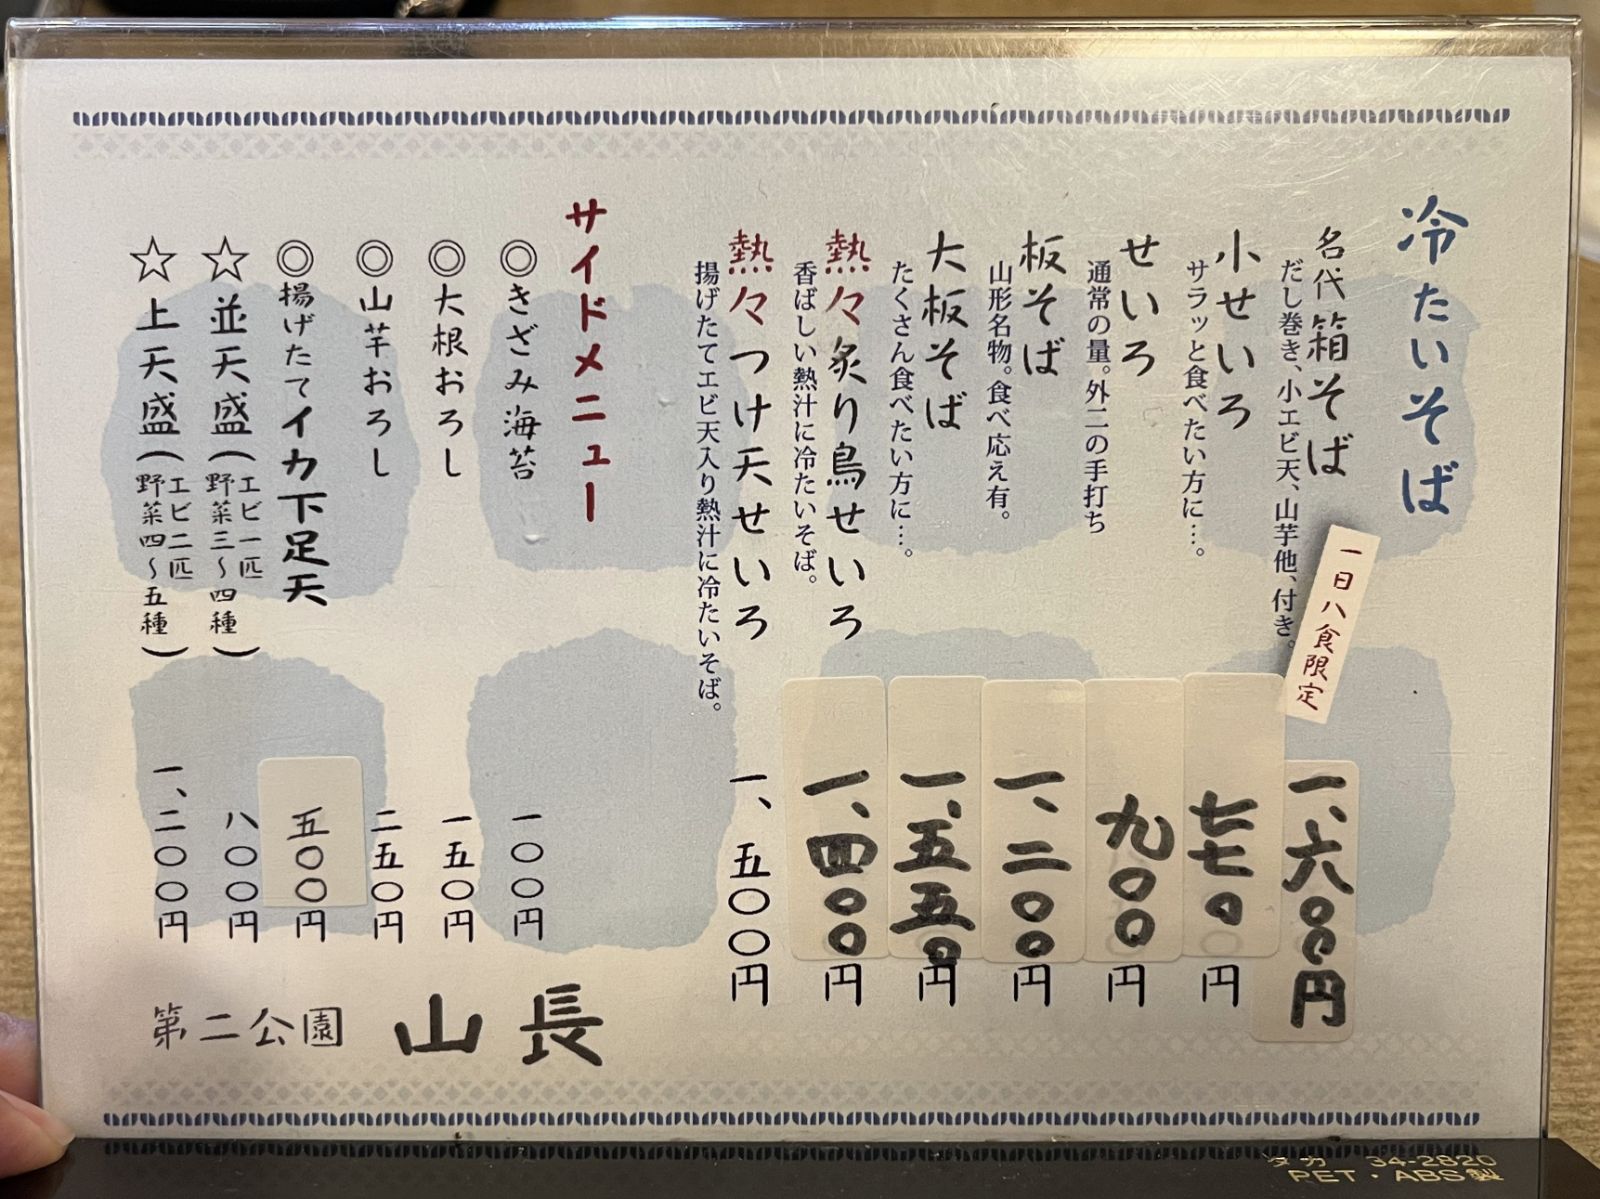 冷たいそば
名代箱そば
だし巻き、小エビ天、山芋他、付き。
一日八食限定
一、六〇〇円
小せいろ
サラッと食べたい方に…。
七七〇円
せいろ
通常の量。外二の手打ち
九〇〇円
板そば
山形名物。食べ応え有。
一、二〇〇円
大板そば
たくさん食べたい方に…。
一、五五〇円
熱々炙り鳥せいろ
香ばしい熱汁に冷たいそば。
一、四〇〇円
熱々つけ天せいろ
揚げたてエビ天入り熱汁に冷たいそば。
一、五〇〇円
サイドメニュー
◎きざみ海苔
一〇〇円
◎大根おろし
一五〇円
◎山芋おろし
二五〇円
◎揚げたてイカ下足天
五〇〇円
☆並天盛(エビ一匹
野菜三～四種)
八〇〇円
☆上天盛(エビ二匹
野菜四～五種)
一、二〇〇円
第二公園 山長
タカ 34-2820
PET・ABS製